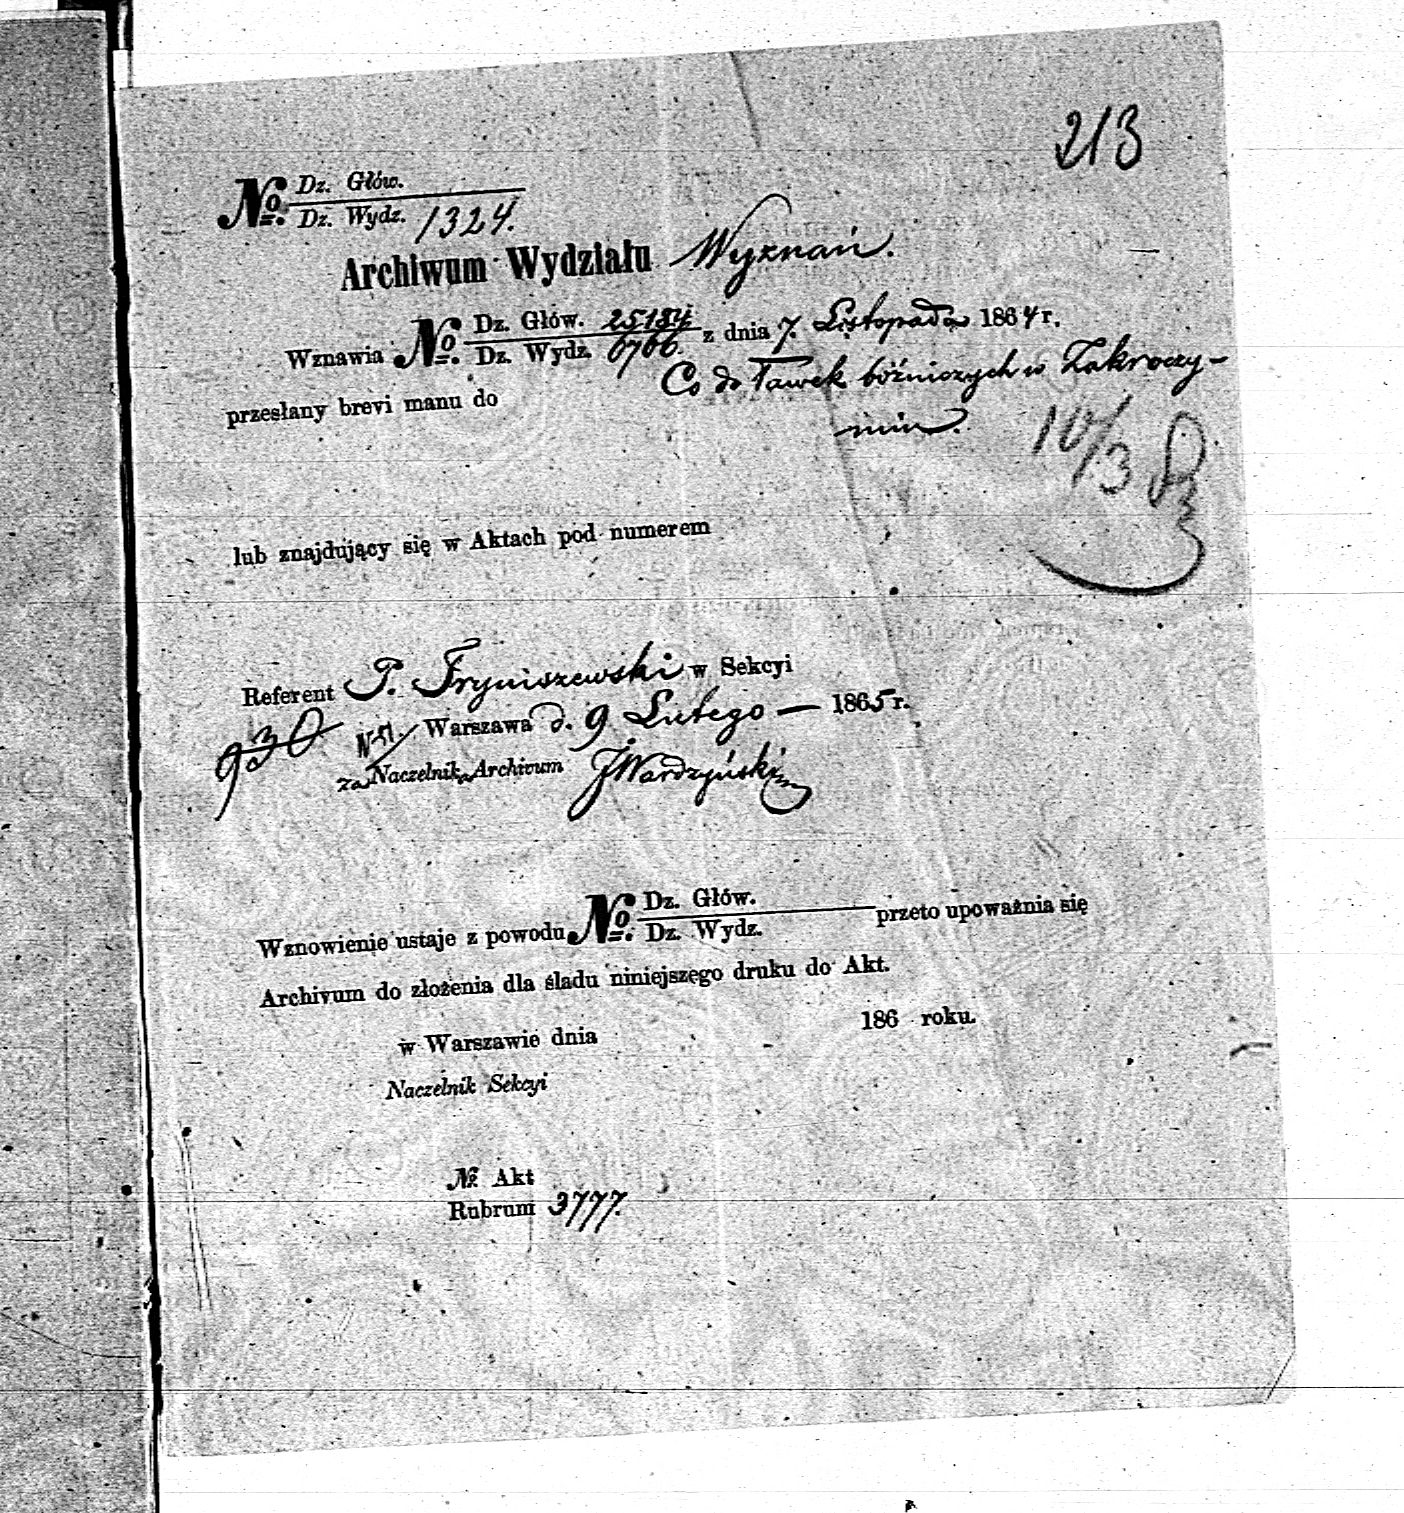 213
№ Dz. Głów.
Dz. Wydz. 1324.
Archiwum Wydziału Wyznań.
Wznawia № Dz. Głów. 25184 z dnia 7. Listopada 1864 r.
Dz. Wydz. 6766.
Co do Ławek bóźniczych w Zakroczy-
przesłany brevi manu do
miu.
10/3
lub znajdujący się w Aktach pod numerem
Referent P. Fryniszewski w Sekcyi
930 Warszawa d. 9 Lutego — 1865 r.
za Naczelnika Archivum J Wardzyński
Wznowienie ustaje z powodu № Dz. Głów. przeto upoważnia się
Dz. Wydz.
Archivum do złożenia dla śladu niniejszego druku do Akt.
w Warszawie dnia 186 roku.
Naczelnik Sekcyi
№ Akt
Rubrum 3777.